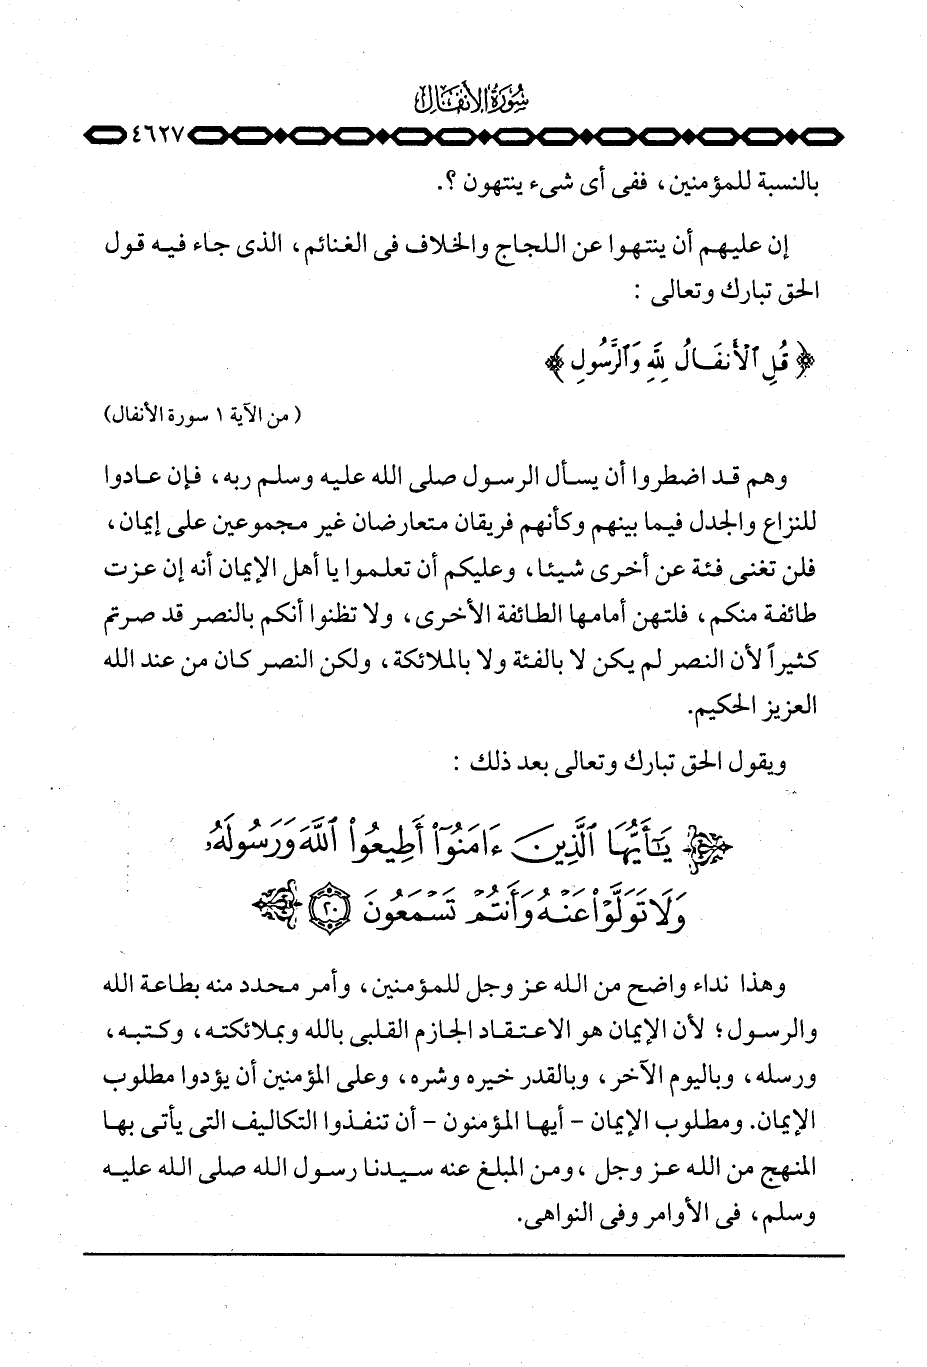 سورة الأنفال
٤٦٢٧
بالنسبة للمؤمنين، ففى أى شىء ينتهون ؟.
إن عليهم أن ينتهوا عن اللجاج والخلاف فى الغنائم، الذى جاء فيه قول
الحق تبارك وتعالى :
﴿ قُلِ ٱلْأَنفَالُ لِلَّهِ وَٱلرَّسُولِ ﴾
( من الآية ١ سورة الأنفال)
وهم قد اضطروا أن يسأل الرسول صلى الله عليه وسلم ربه، فإن عادوا
للنزاع والجدل فيما بينهم وكأنهم فريقان متعارضان غير مجموعين على إيمان،
فلن تغنى فئة عن أخرى شيئا، وعليكم أن تعلموا يا أهل الإيمان أنه إن عزت
طائفة منكم، فلتهن أمامها الطائفة الأخرى، ولا تظنوا أنكم بالنصر قد صرتم
كثيراً لأن النصر لم يكن لا بالفئة ولا بالملائكة، ولكن النصر كان من عند الله
العزيز الحكيم.
ويقول الحق تبارك وتعالى بعد ذلك :
﴿ يَٰٓأَيُّهَا ٱلَّذِينَ ءَامَنُوٓا۟ أَطِيعُوا۟ ٱللَّهَ وَرَسُولَهُۥ
وَلَا تَوَلَّوْا۟ عَنْهُ وَأَنتُمْ تَسْمَعُونَ ٢٠ ﴾
وهذا نداء واضح من الله عز وجل للمؤمنين، وأمر محدد منه بطاعة الله
والرسول؛ لأن الإيمان هو الاعتقاد الجازم القلبى بالله وبملائكته، وكتبه،
ورسله، وباليوم الآخر، وبالقدر خيره وشره، وعلى المؤمنين أن يؤدوا مطلوب
الإيمان. ومطلوب الإيمان - أيها المؤمنون - أن تنفذوا التكاليف التى يأتى بها
المنهج من الله عز وجل ،ومن المبلغ عنه سيدنا رسول الله صلى الله عليه
وسلم، فى الأوامر وفى النواهى.